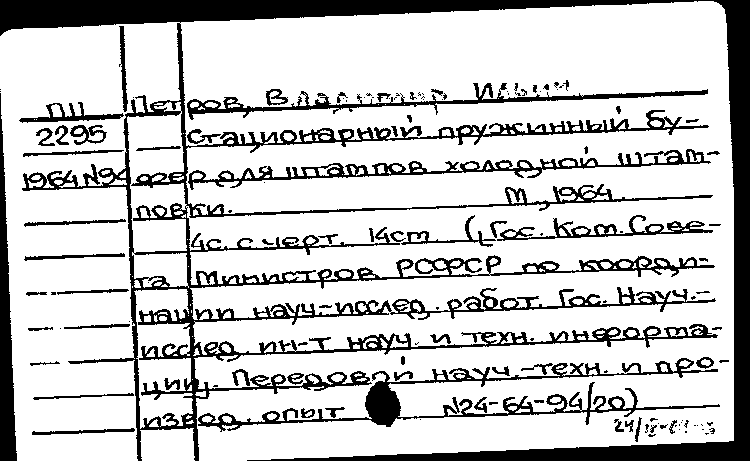 ПП Петров, Владимир Ильич
2295 Стационарный пружинный бу-
1964 N94 фер для штампов холодной штам-
повки. М., 1964.
4с. с черт. 14см (Гос. Ком. Сове-
та Министров РСФСР по коорди-
нации науч.-исслед. работ. Гос. Науч.-
исслед. ин-т науч. и техн. информа-
ции. Передовой науч.-техн. и про-
извод. опыт N24-64-94/20)